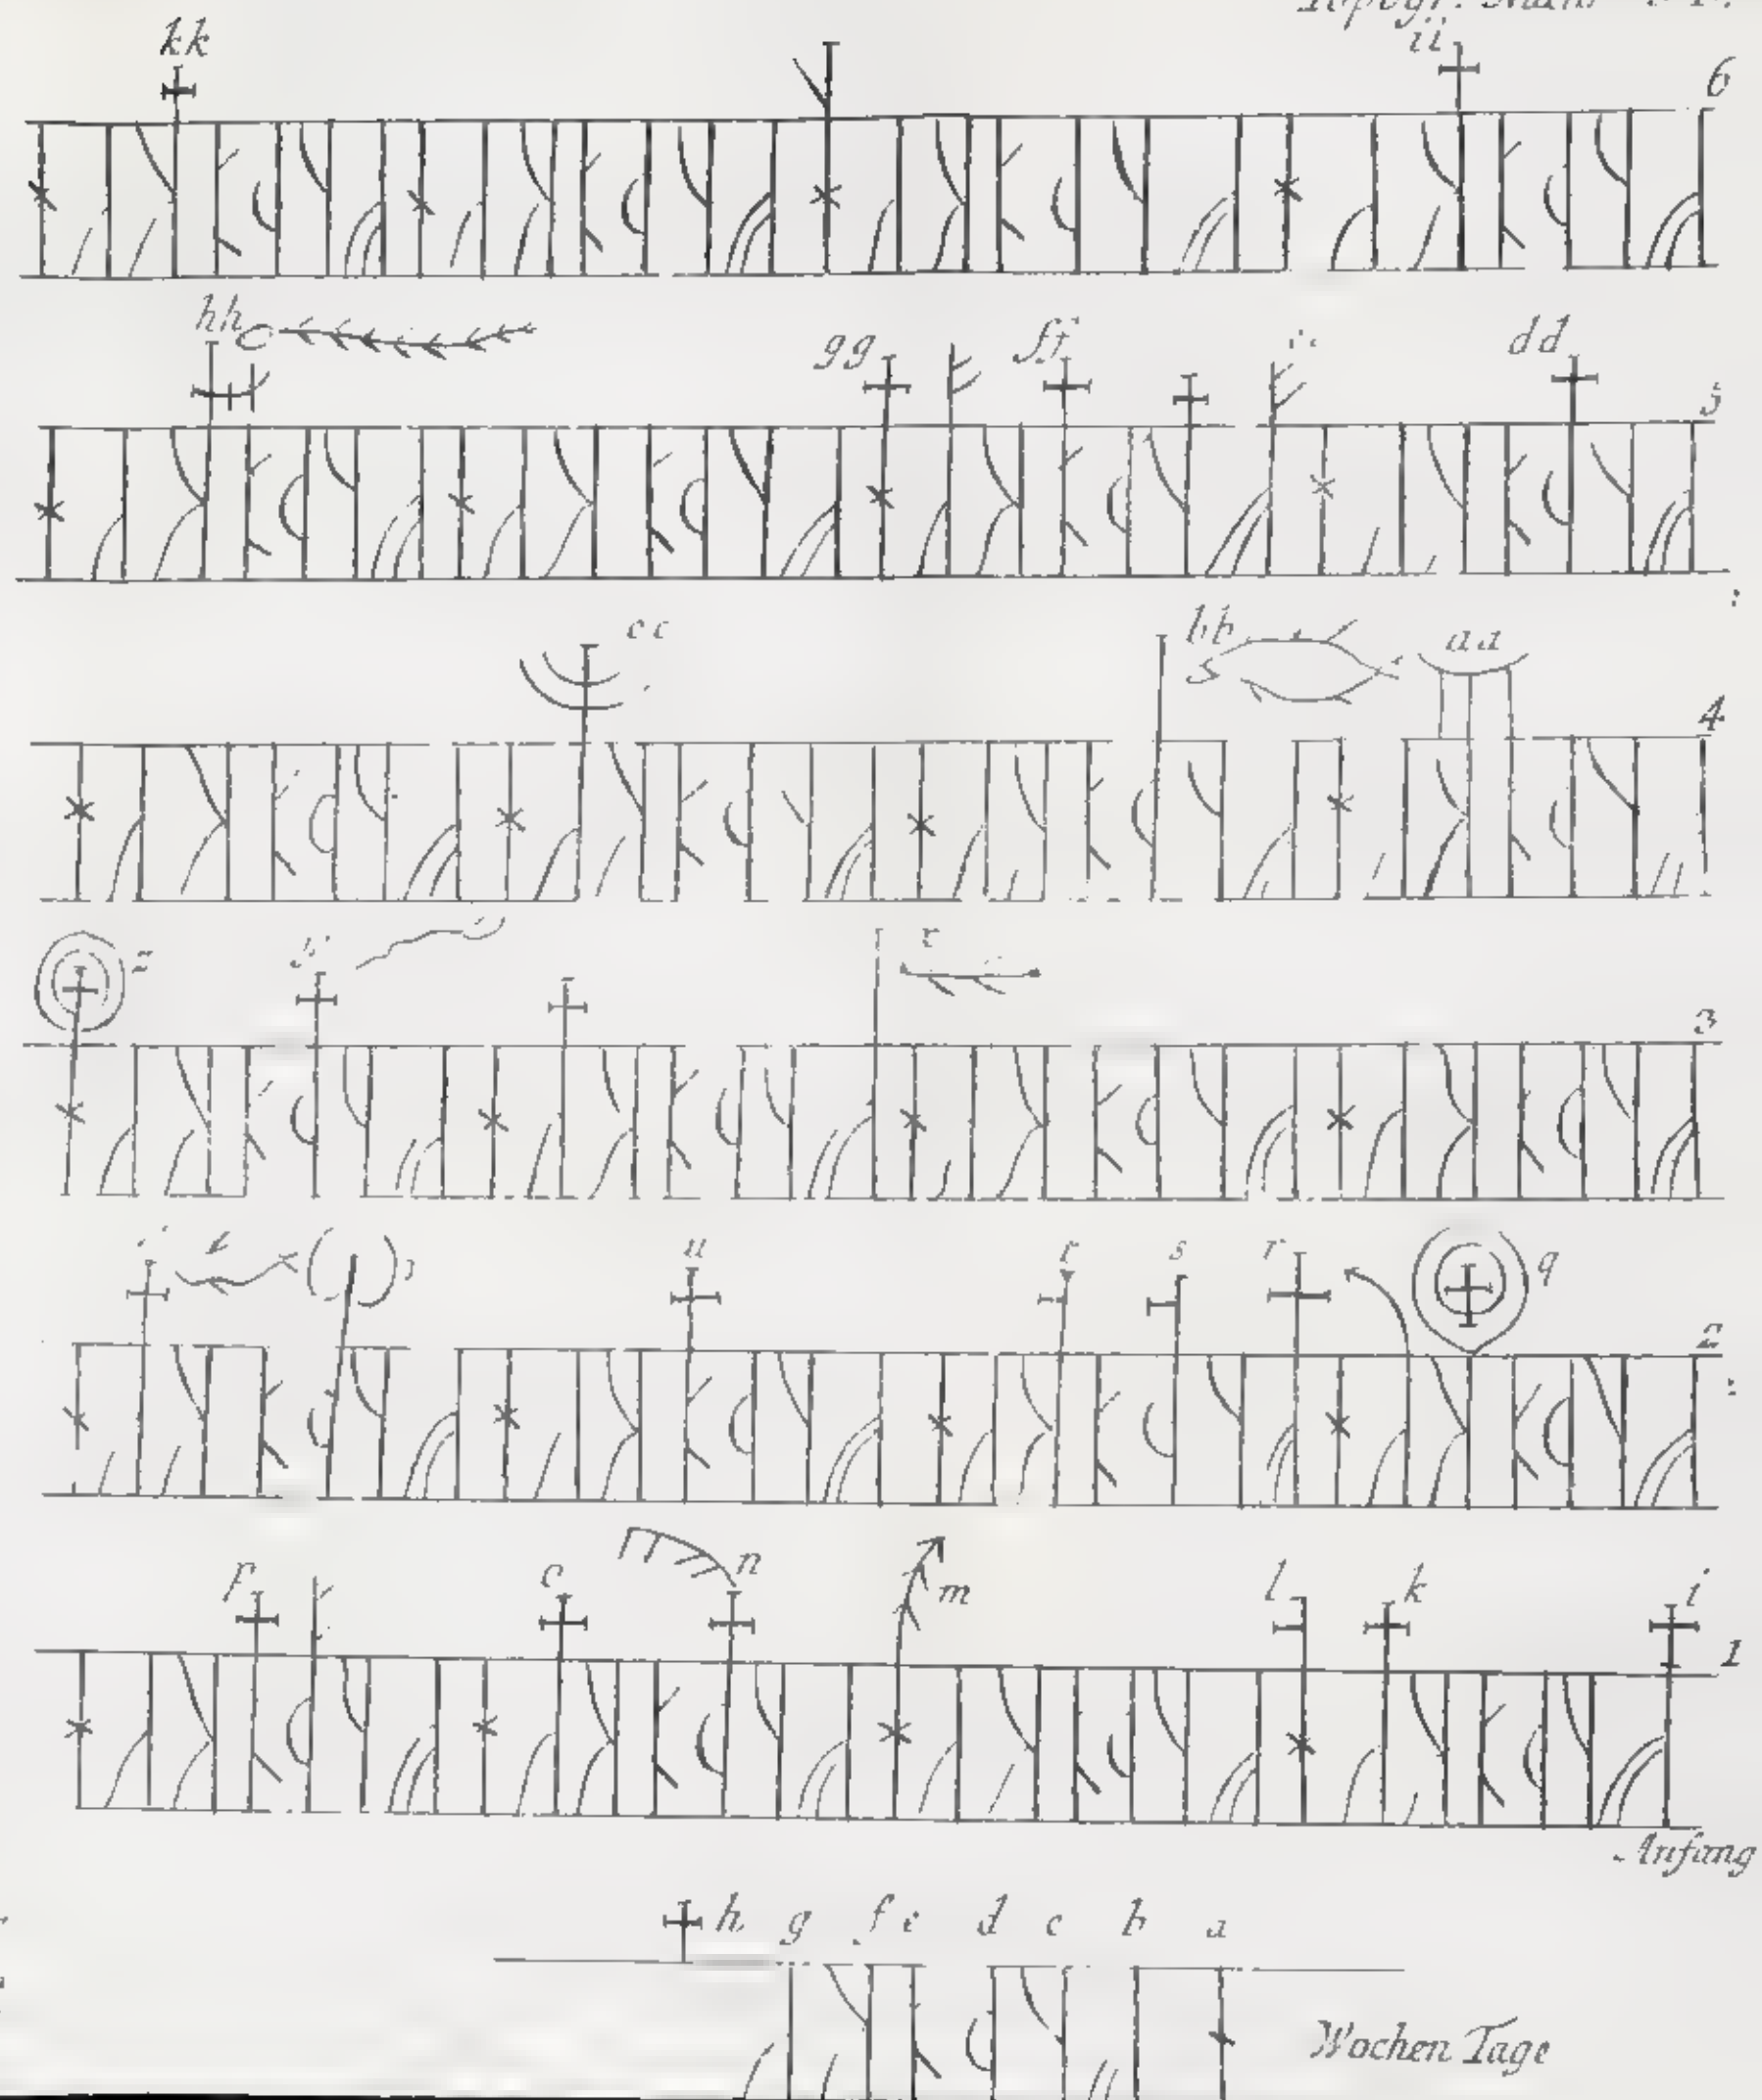 kk ii 6
hh gg ff dd 5
cc bb aa 4
z y x 3
u t s r q 2
p n m l k i 1
Anfang
h g f e d c b a
Wochen Tage